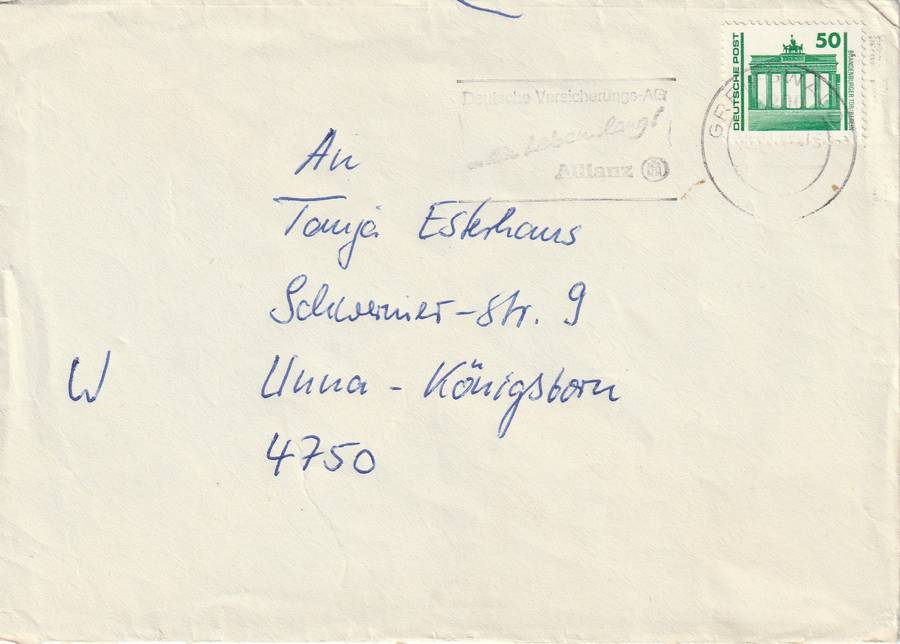 Deutsche Versicherungs-AG
... ein Leben lang!
Allianz
DEUTSCHE POST
50
BRANDENBURGER TOR BERLIN
An
Tanja Esterhaus
Schweriner-Str. 9
W Unna - Königsborn
4750